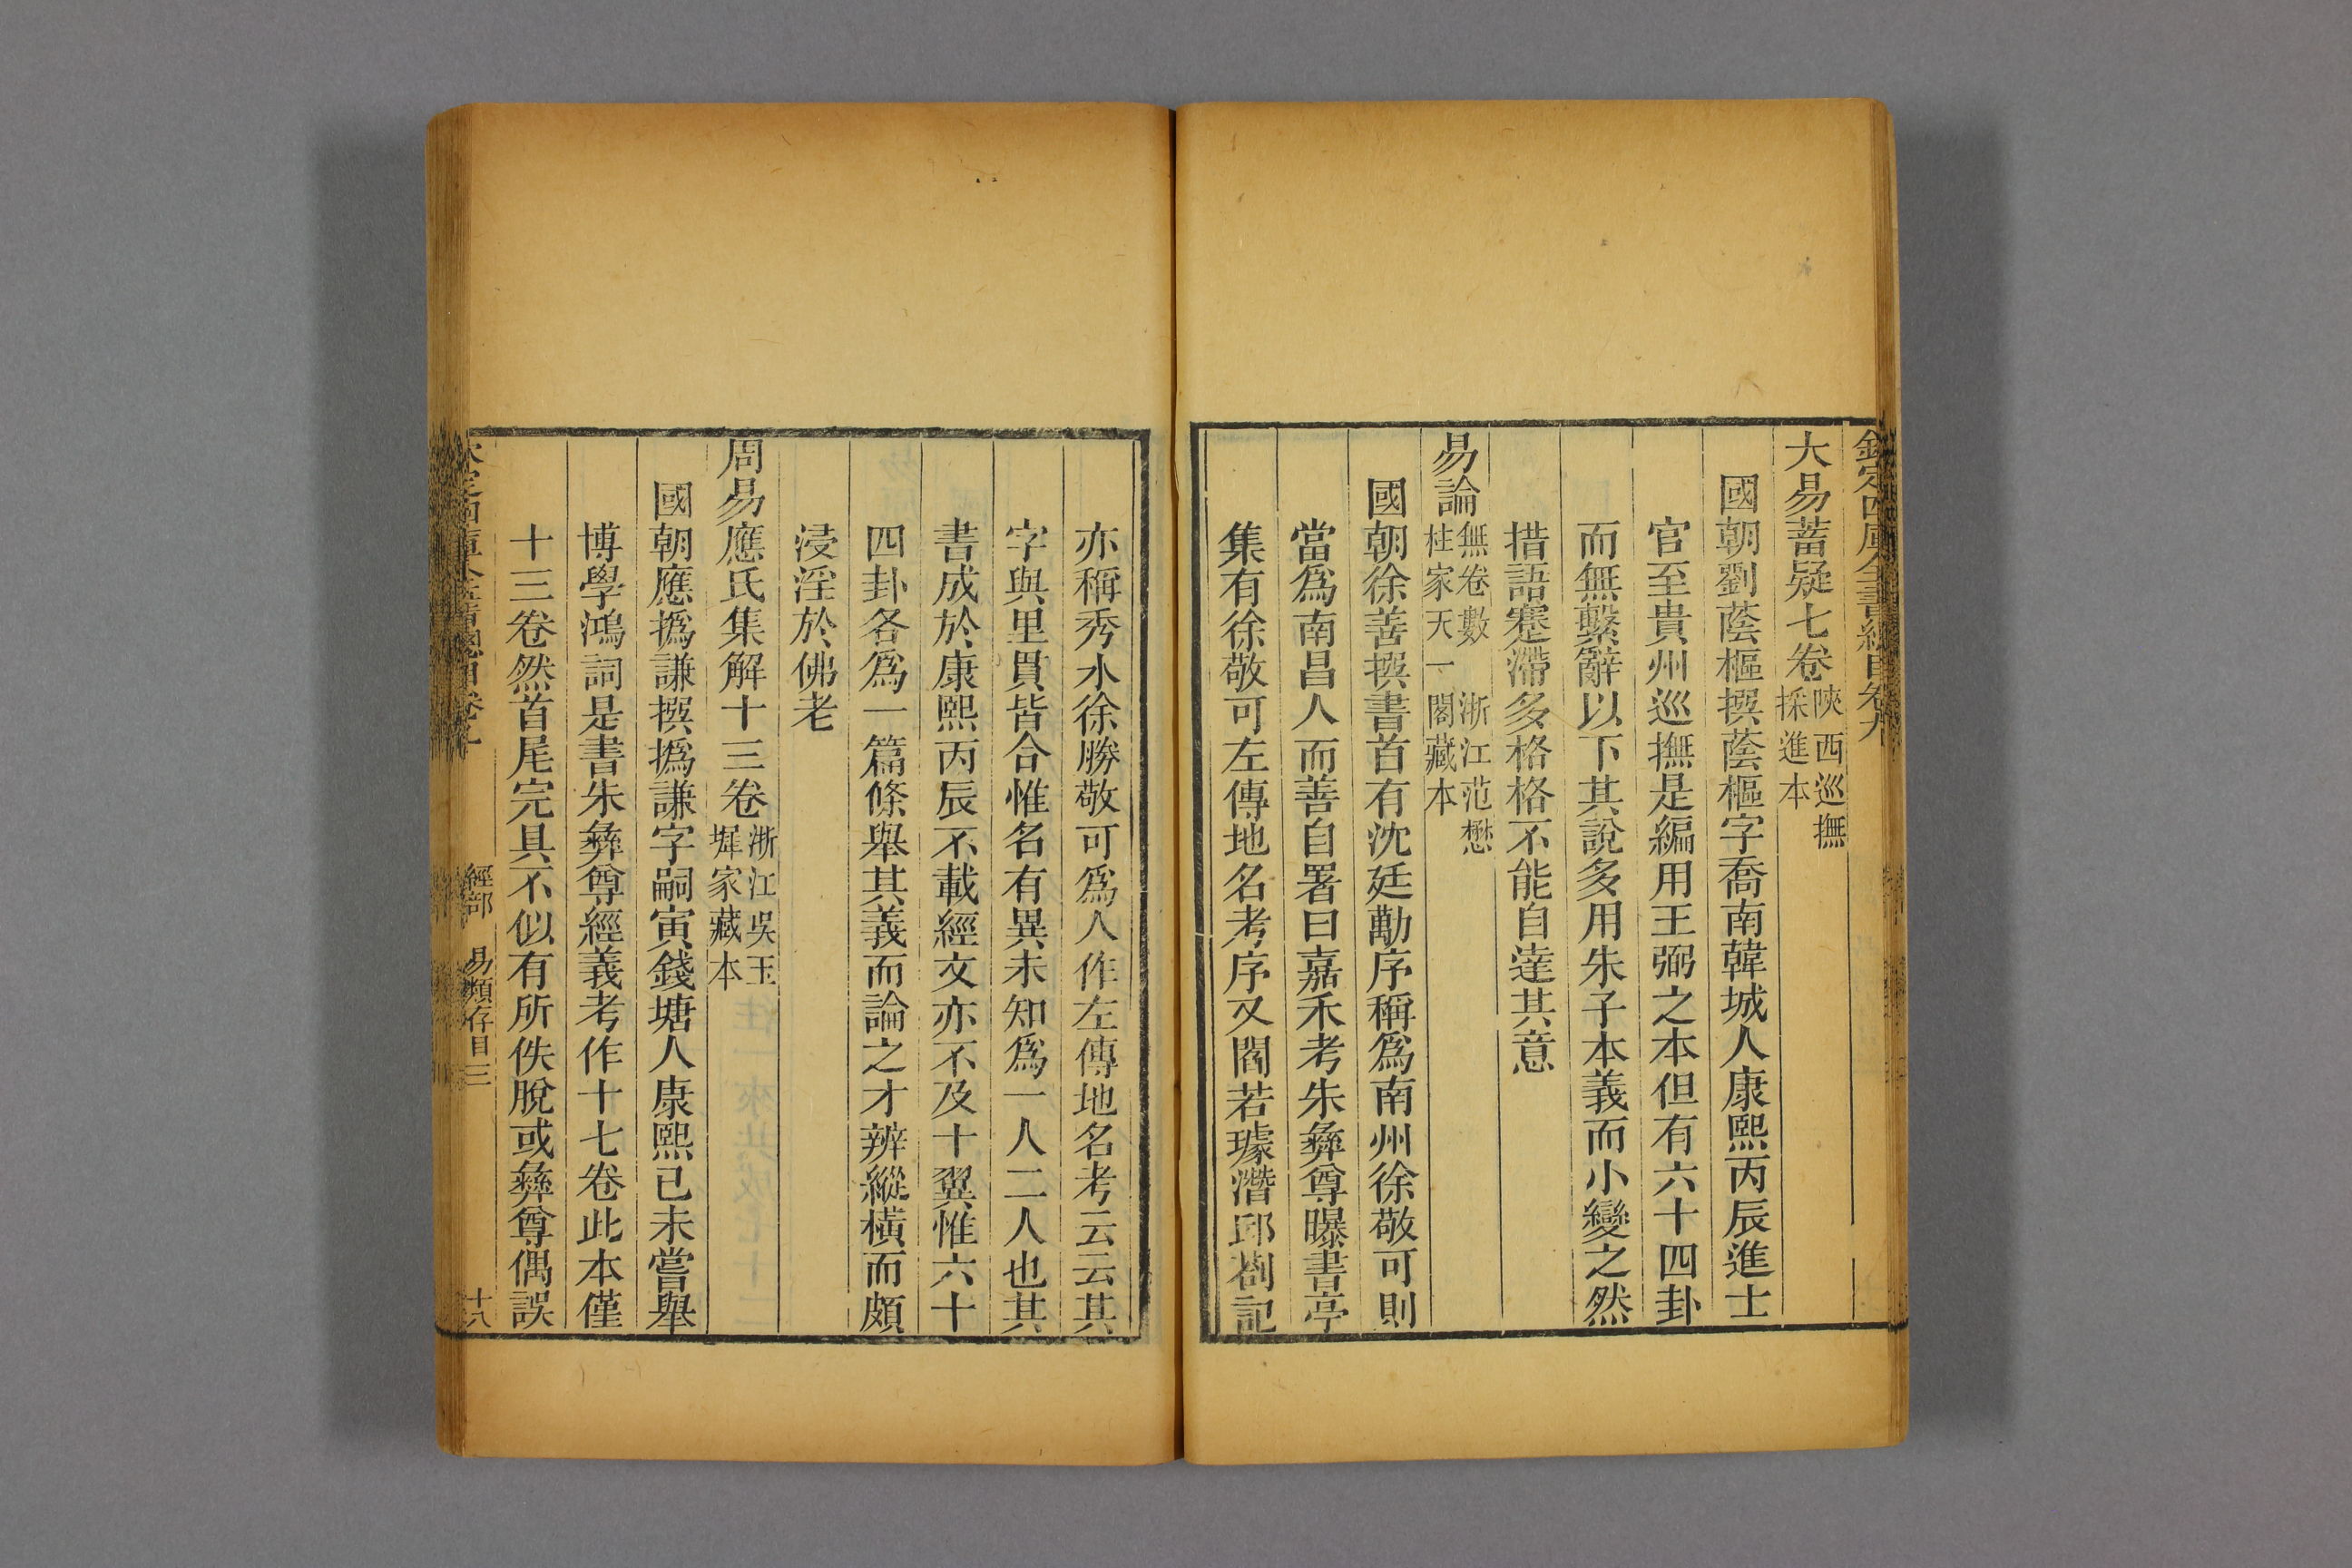 欽定四庫全書總目卷九
大易蓄疑七卷陝西巡撫採進本
國朝劉蔭樞撰蔭樞字喬南韓城人康熙丙辰進士
官至貴州巡撫是編用王弼之本但有六十四卦
而無繫辭以下其說多用朱子本義而小變之然
措語蹇滯多格格不能自達其意
易論無卷數浙江范懋柱家天一閣藏本
國朝徐善撰書首有沈廷勱序稱爲南州徐敬可則
當爲南昌人而善自署曰嘉禾考朱彝尊曝書亭
集有徐敬可左傳地名考序又閻若璩潛邱劄記
亦稱秀水徐勝敬可爲人作左傳地名考云云其
字與里貫皆合惟名有異未知爲一人二人也其
書成於康熙丙辰不載經文亦不及十翼惟六十
四卦各爲一篇條舉其義而論之才辨縱橫而頗
浸淫於佛老
周易應氏集解十三卷浙江吳玉墀家藏本
國朝應撝謙撰撝謙字嗣寅錢塘人康熙己未嘗舉
博學鴻詞是書朱彝尊經義考作十七卷此本僅
十三卷然首尾完具不似有所佚脫或彝尊偶誤
經部 易類存目三 十八